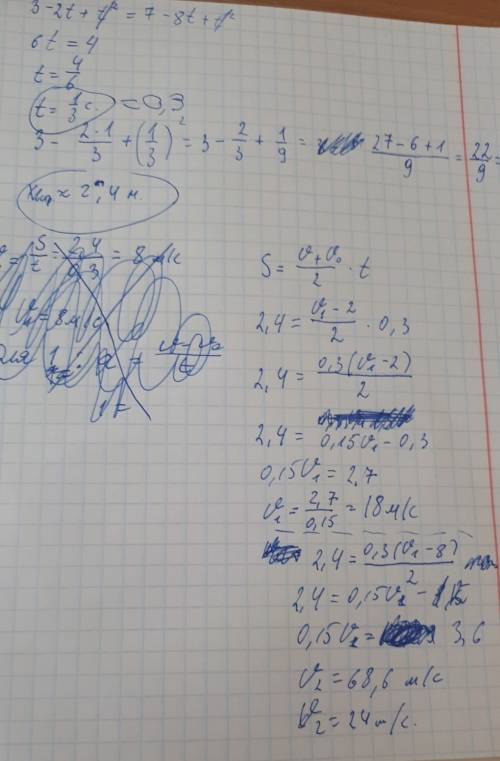 3-2t+t²=7-8t+t²
6t=4
t=4/6
t=1/3 с. =0,3
3-2·1/3+(1/3)²=3-2/3+1/9= 27-6+1/9=22/9=
≈2,4 м.
=S/t=2,4/0,3=8 м/с
=8м/с
для 1
S=v+v₀/2·t
2,4=v₁-2/2·0,3
2,4=0,3(v₁-2)/2
2,4=0,15v₁-0,3
0,15v₁=2,7
v₁=2,7/0,15=18м/с
2,4=0,3(v₁-8)/2
2,4=0,15v₂-1,2
0,15v₂= 3,6
v₂=68,6 м/с
v₂=24м/с.